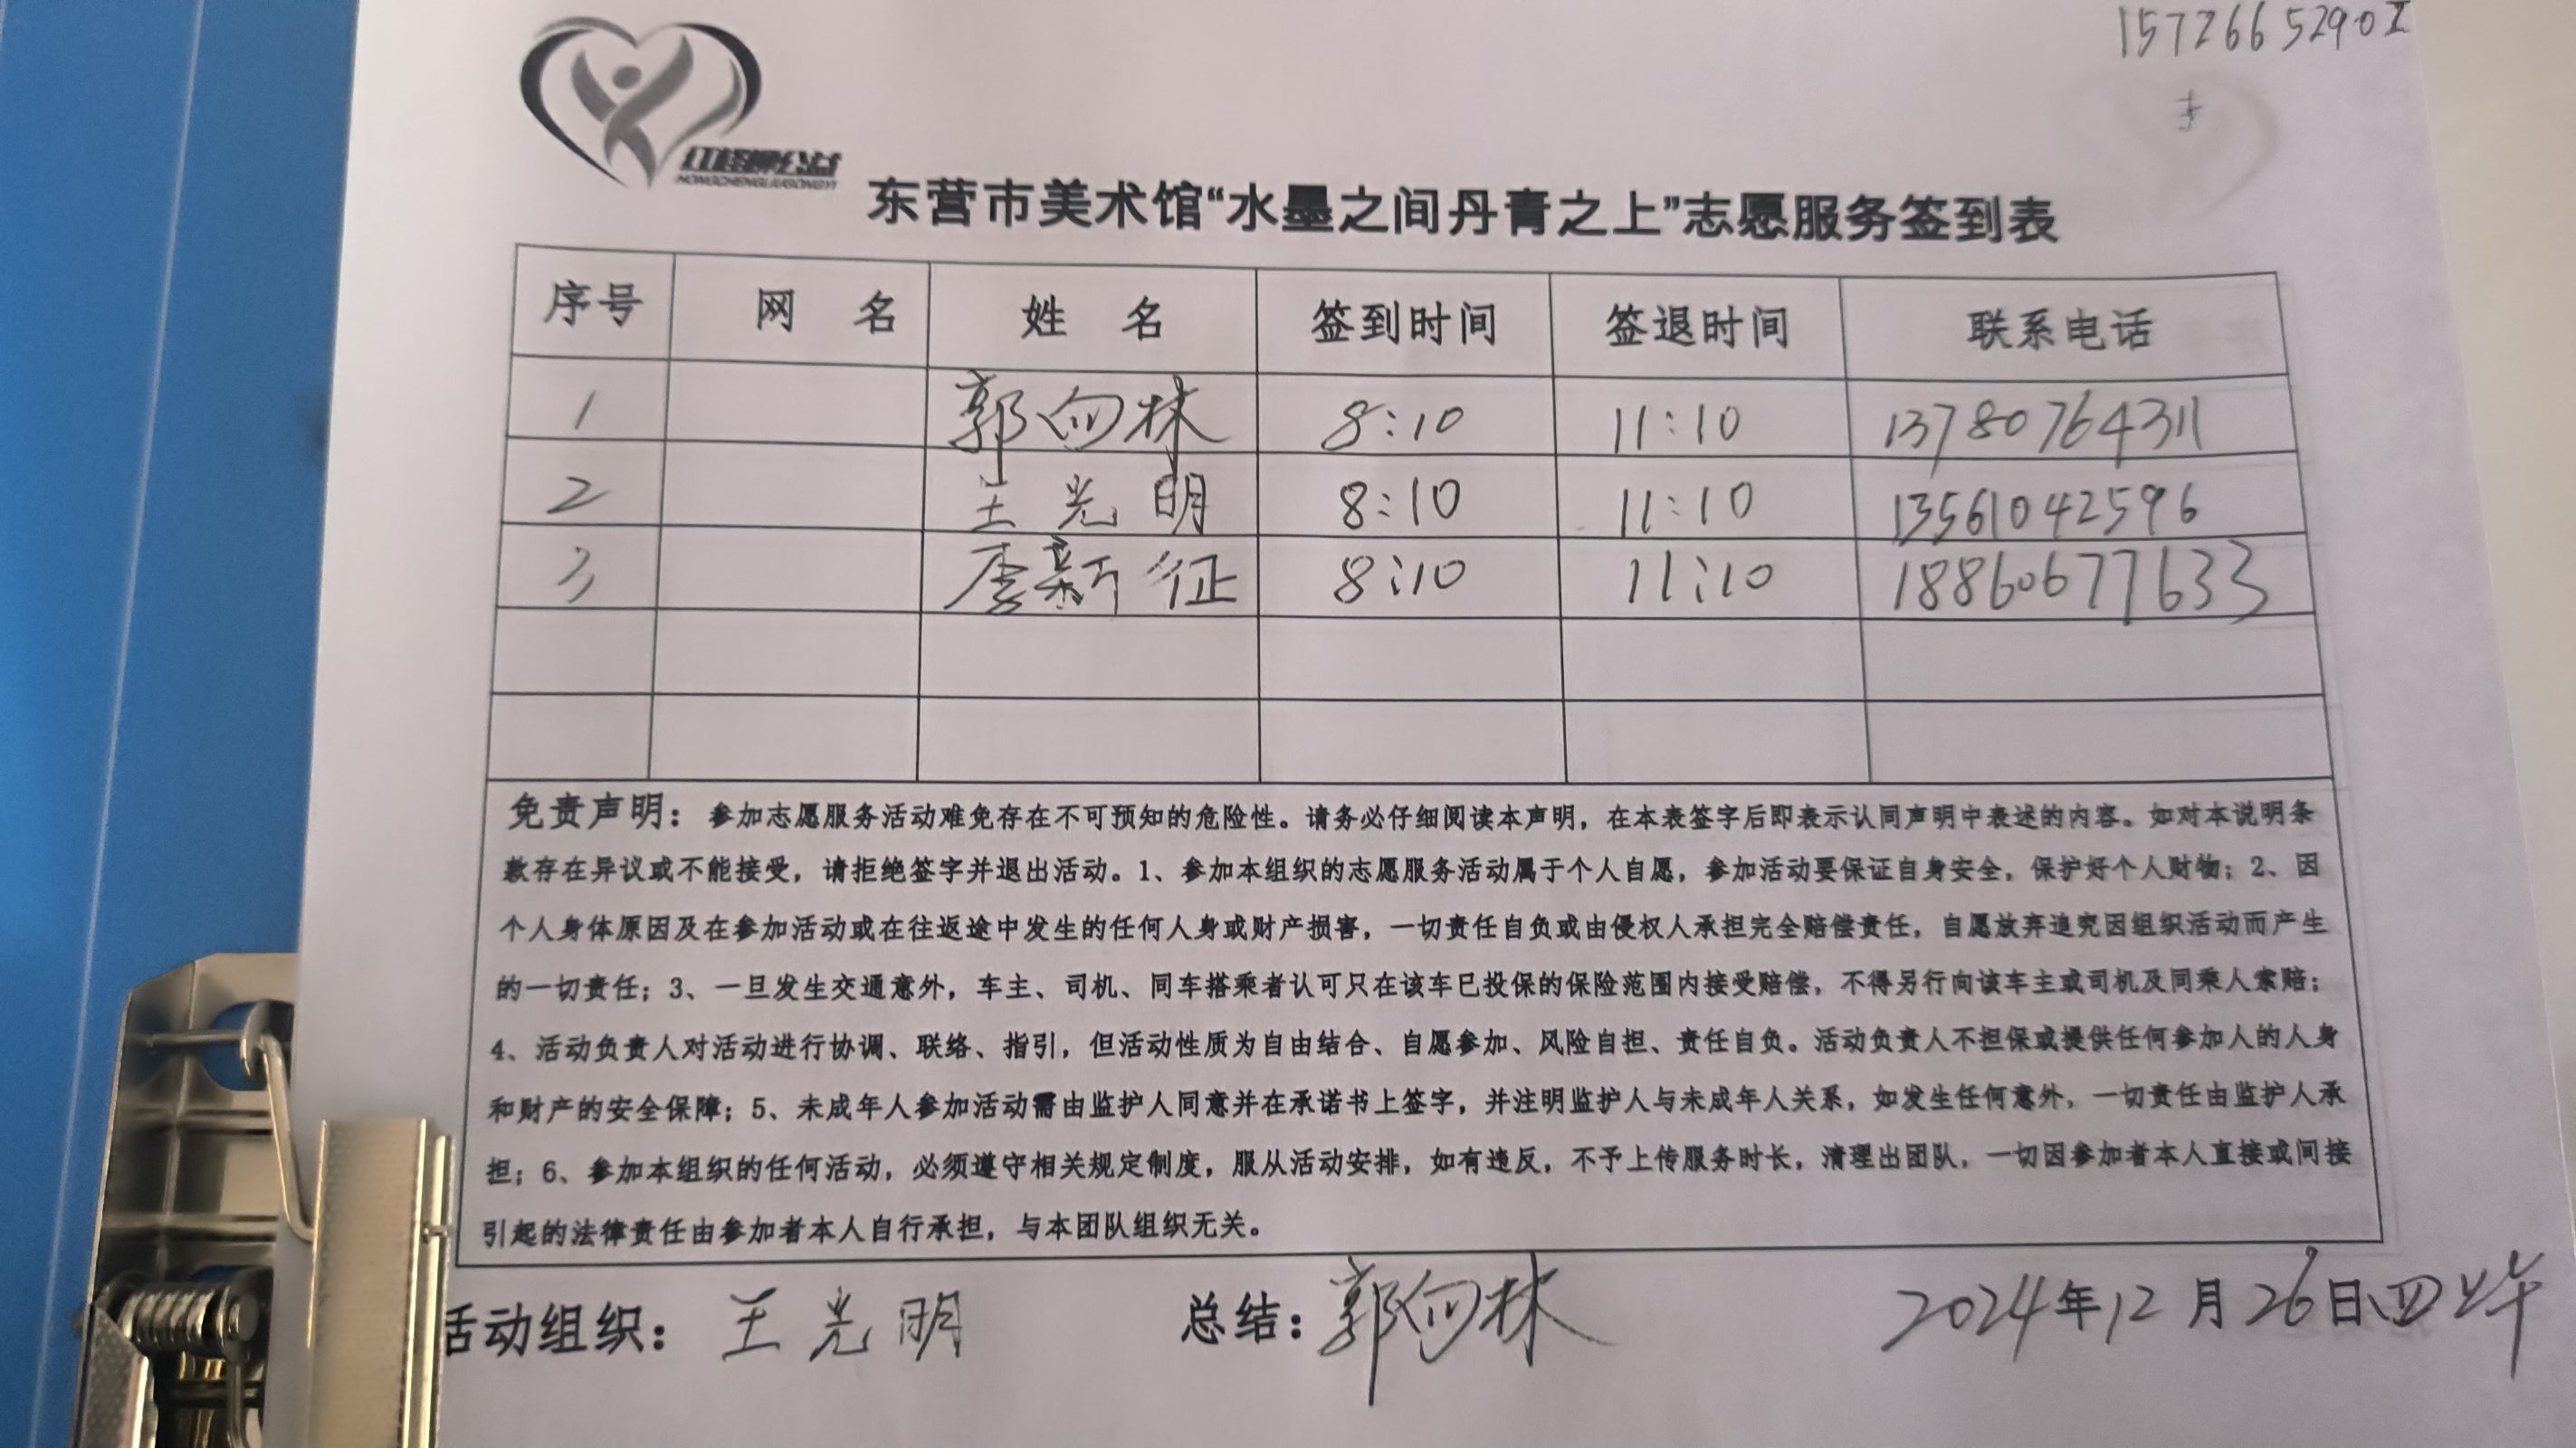 1572665290
红柽柳公益
HONGCHENGLIUGONGYI
东营市美术馆“水墨之间丹青之上”志愿服务签到表
序号 网 名 姓 名 签到时间 签退时间 联系电话
1 郭向林 8:10 11:10 13780764311
2 王光明 8:10 11:10 13561042596
3 李新征 8:10 11:10 18860677633
免责声明：参加志愿服务活动难免存在不可预知的危险性。请务必仔细阅读本声明，在本表签字后即表示认同声明中表述的内容。如对本说明条
款存在异议或不能接受，请拒绝签字并退出活动。1、参加本组织的志愿服务活动属于个人自愿，参加活动要保证自身安全，保护好个人财物；2、因
个人身体原因及在参加活动或在往返途中发生的任何人身或财产损害，一切责任自负或由侵权人承担完全赔偿责任，自愿放弃追究因组织活动而产生
的一切责任；3、一旦发生交通意外，车主、司机、同车搭乘者认可只在该车已投保的保险范围内接受赔偿，不得另行向该车主或司机及同乘人索赔；
4、活动负责人对活动进行协调、联络、指引，但活动性质为自由结合、自愿参加、风险自担、责任自负。活动负责人不担保或提供任何参加人的人身
和财产的安全保障；5、未成年人参加活动需由监护人同意并在承诺书上签字，并注明监护人与未成年人关系，如发生任何意外，一切责任由监护人承
担；6、参加本组织的任何活动，必须遵守相关规定制度，服从活动安排，如有违反，不予上传服务时长，清理出团队，一切因参加者本人直接或间接
引起的法律责任由参加者本人自行承担，与本团队组织无关。
活动组织：王光明 总结：郭向林 2024年12月26日四上午